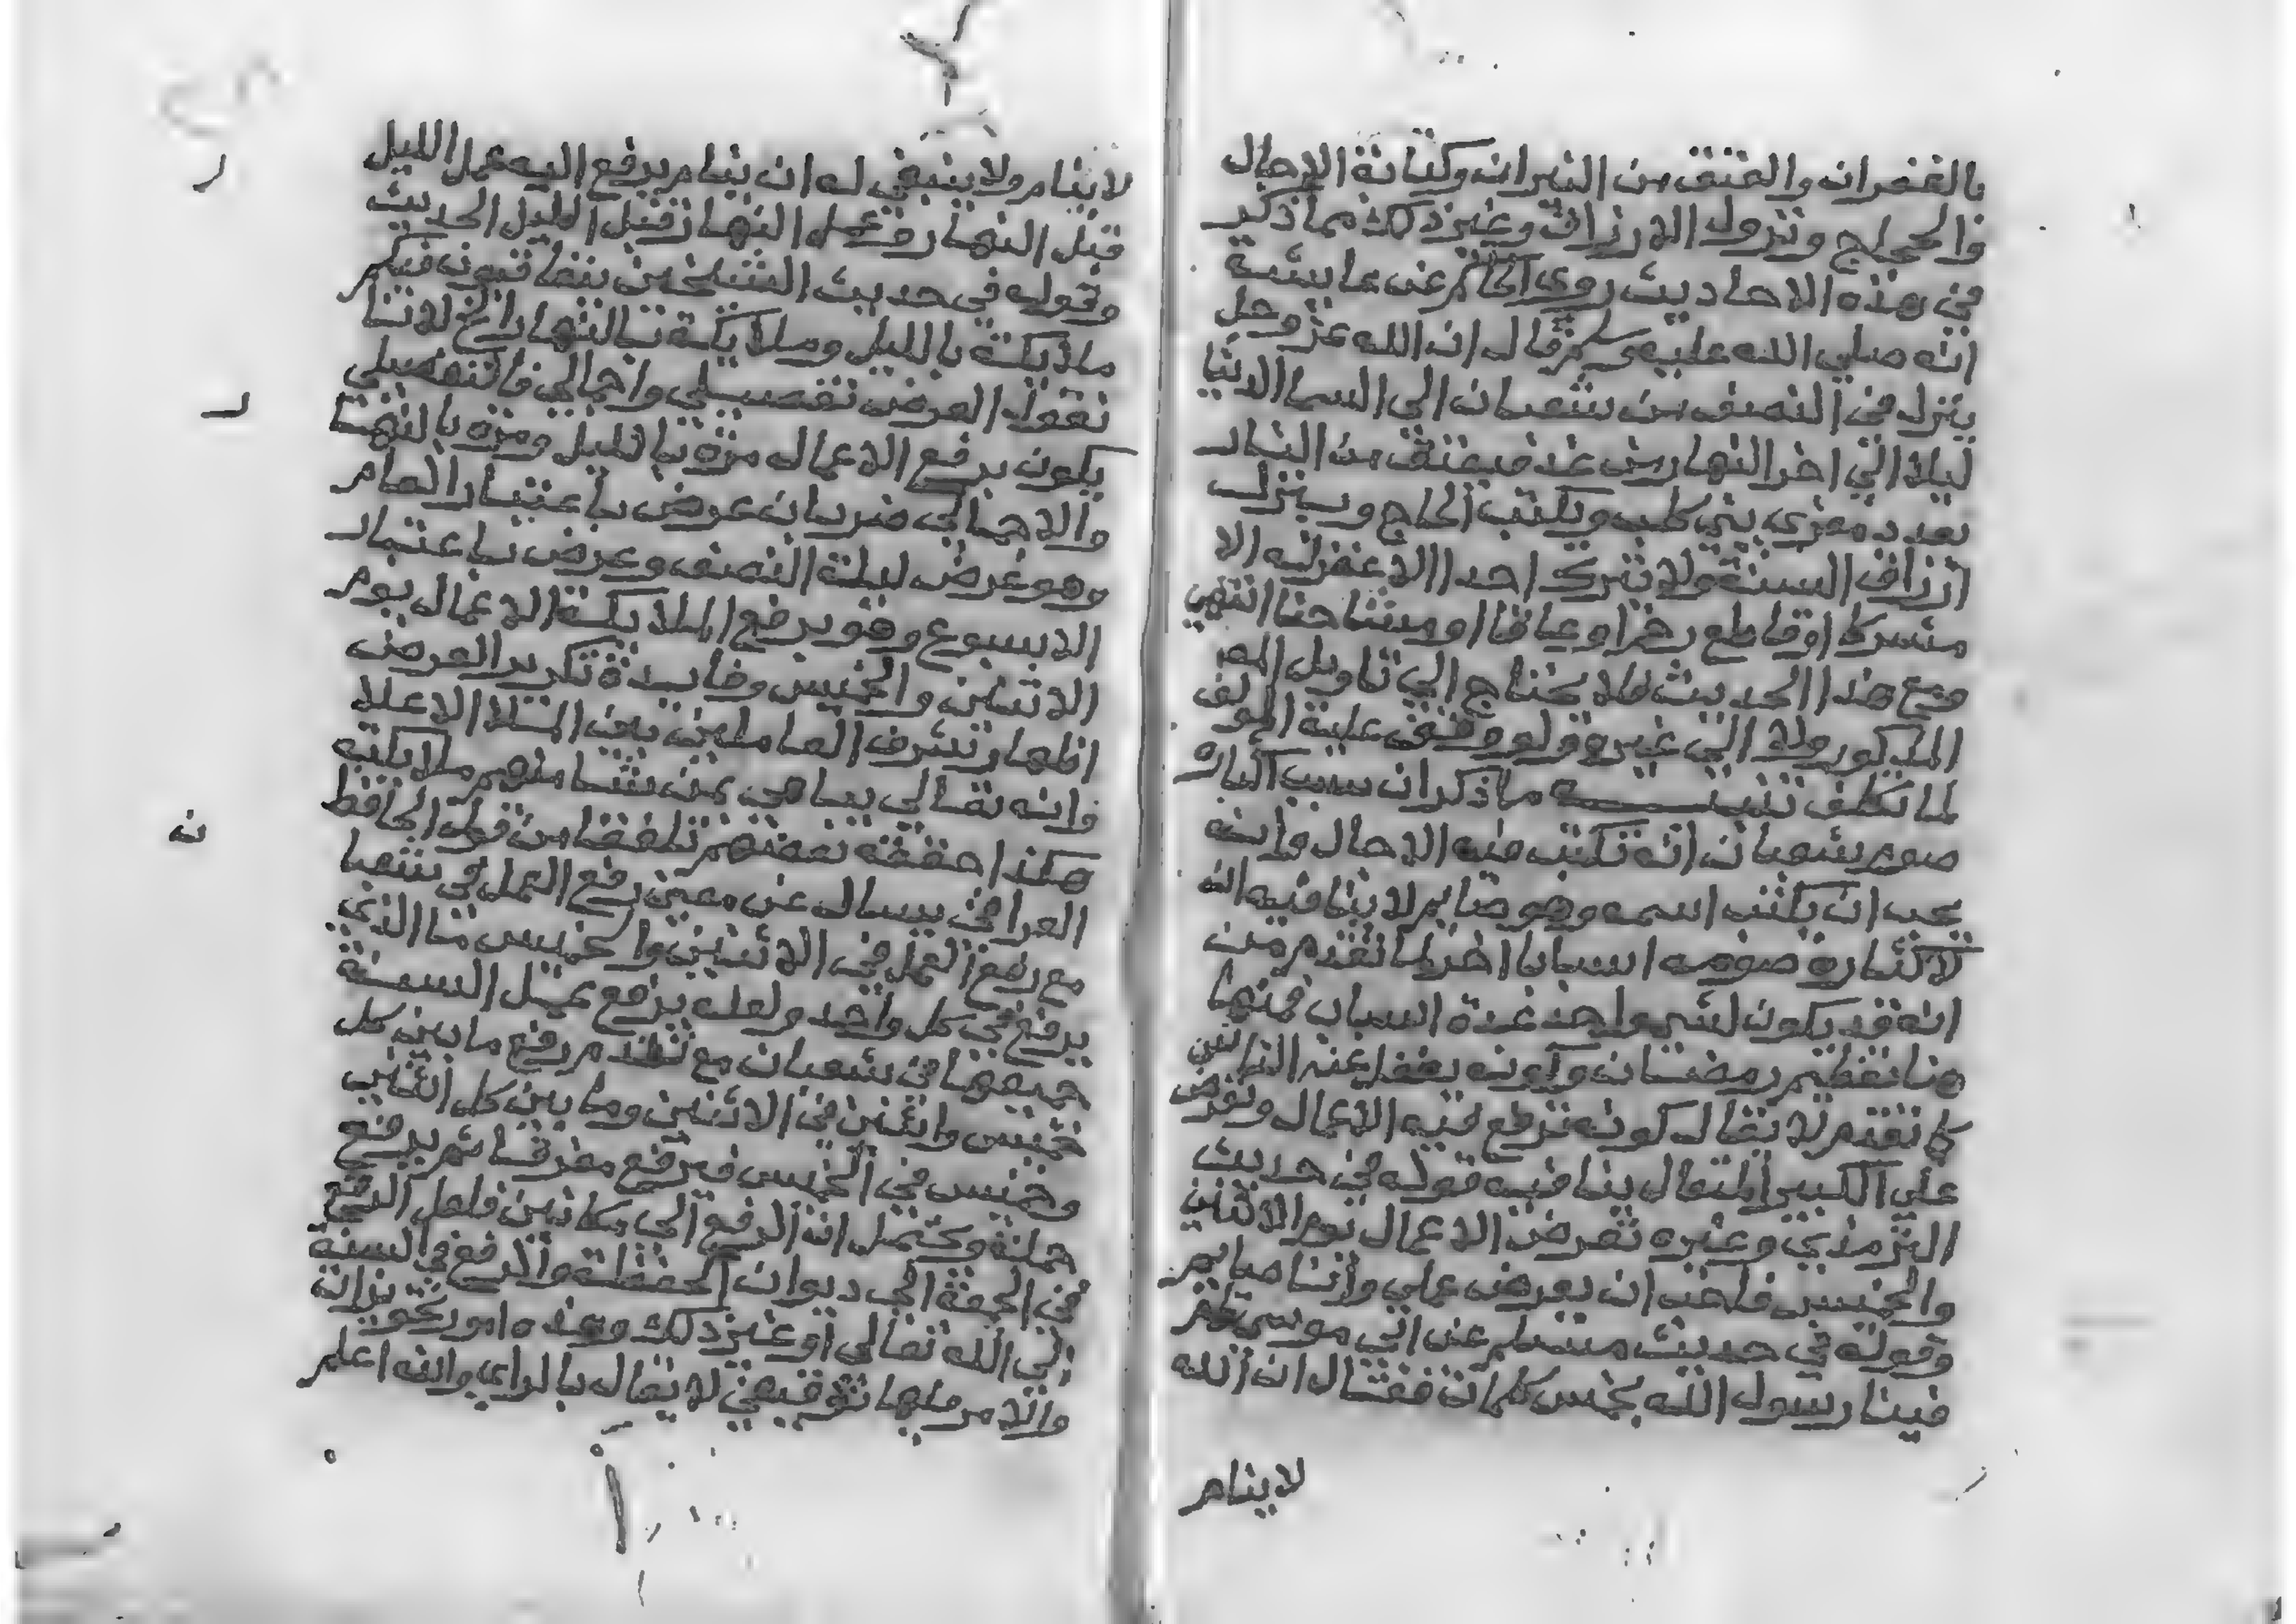 بالغفران والعتق من النيران وكتابة الاجال
والحجاج ونزول الارزاق وغير ذلك مما ذكر
في هذه الاحاديث روي الحاكم عن عايشة
انه صلي الله عليه وسلم قال ان الله عز وجل
ينزل في النصف من شعبان الي السما الدنيا
ليلا الي اخر النهار من غد فيعتق من النار
بعدد معزي بني كلب ويكتب الحاج وينزل
ارزاق السنة ولا يترك احدا الا غفر له الا
مشركا او قاطع رحم او عاقا او مشاحنا انتهي
ومع هذا الحديث فلا يحتاج الي تاويل المص
المذكور ولا الي غيره ولو وقف عليه المولف
لما تكلف تنبيه ما ذكر ان سبب اكثاره
صوم شعبان انه تكتب فيه الاجال وانه
يحب ان يكتب اسمه وهو صايم لا ينافيه ان
لاكثاره صومه اسبابا اخر لما تقدم من
انه قد يكون لشي واحد عدة اسباب فمنها
هنا تعظيم رمضان وكونه يغفل عنه الناس
كما تقدم لا يقال كونه ترفع فيه الاعمال وتعرض
علي الكبير المتعال ينافيه قوله في حديث
الترمذي وغيره تعرض الاعمال يوم الاثنين
والخميس فاحب ان يعرض عملي وانا صايم
وقوله في حديث مسلم عن ابي موسي قام
فينا رسول الله بخمس كلمات فقال ان الله
لا ينام
لا ينام ولا ينبغي له ان ينام يرفع اليه عمل الليل
قبل النهار وعمل النهار قبل الليل الحديث
وقوله في حديث الشيخين يتعاقبون فيكم
ملايكة بالليل وملايكة بالنهار الخ لانا
نقول العرض تفصيلي واجمالي فالتفصيلي
يكون برفع الاعمال مرة بالليل ومرة بالنها
والاجمالي ضربان عرض باعتبار العام
وهو عرض ليلة النصف وعرض باعتبار
الاسبوع وهو يرفع الملايكة الاعمال يوم
الاثنين والخميس وفايدة تكرير العرض
اظهار تشرف العاملين بين الملا الاعلا
وانه تعالي يباهي بمن شا منهم ملايكته
هكذا حققه بعضهم تلفقا من قول الحافظ
العراقي يسال عن معني رفع العمل في شعبا
مع رفع العمل في الاثنين والخميس ما الذي
يرفع في كل واحد ولعله يرفع عمل السنة
جميعها في شعبان مع تقدم رفع ما بين كل
خميس واثنين في الاثنين وما بين كل اثنين
وخميس في الخميس فيرفع مفرقا ثم يرفع
جملة ويحتمل ان الرفع الي مكانين فلعل الرفع
في الجمعة الي ديوان الحفظة والرفع في السنة
الي الله تعالي او غير ذلك وهذه امور تجويزات
والامر منها توقيفي لا يقال بالراي والله اعلم
ر
ر
ن